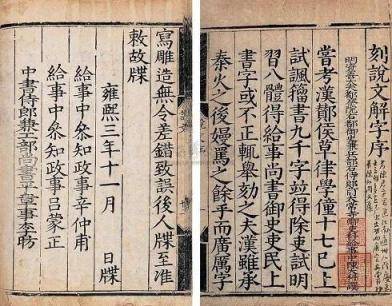 刻說文解字序
嘗考漢酇侯草律學僮十七已上
試諷籀書九千字竝得除吏試明
習八體得給事尚書御史吏民上
書字或不正輒舉劾之夫漢雖承
秦火之後嫚罵之餘乎而廣厲字
寫雕造無令差錯致誤後人牒至准
敕故牒
雍熙三年十一月 日牒
給事中參知政事辛仲甫
給事中參知政事呂蒙正
中書侍郎兼工部尚書平章事李昉